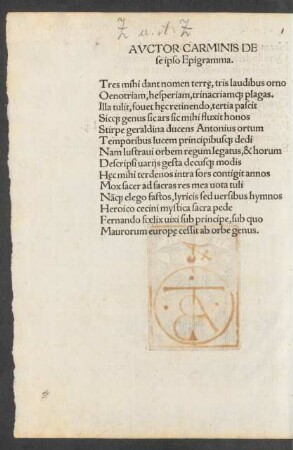 AVCTOR CARMINIS DE
se ipso Epigramma.
Tres mihi dant nomen terrę, tris laudibus orno
Oenotriam, hesperiam, trinacriamq; plagas.
Illa tulit, fouet hęc retinendo, tertia pascit
Sicq; genus sic ars sic mihi fluxit honos
Stirpe geraldina ducens Antonius ortum
Temporibus lucem principibusq; dedi
Nam lustraui orbem regum legatus, & horum
Descripsi uarijs gesta decusq; modis
Hęc mihi ter denos intra sors contigit annos
Mox sacer ad sacras res mea uota tuli
Nāq; elego fastos, lyricis sed uersibus hymnos
Heroico cecini mystica sacra pede
Fernando fœlix uixi sub principe, sub quo
Maurorum europę cessit ab orbe genus.